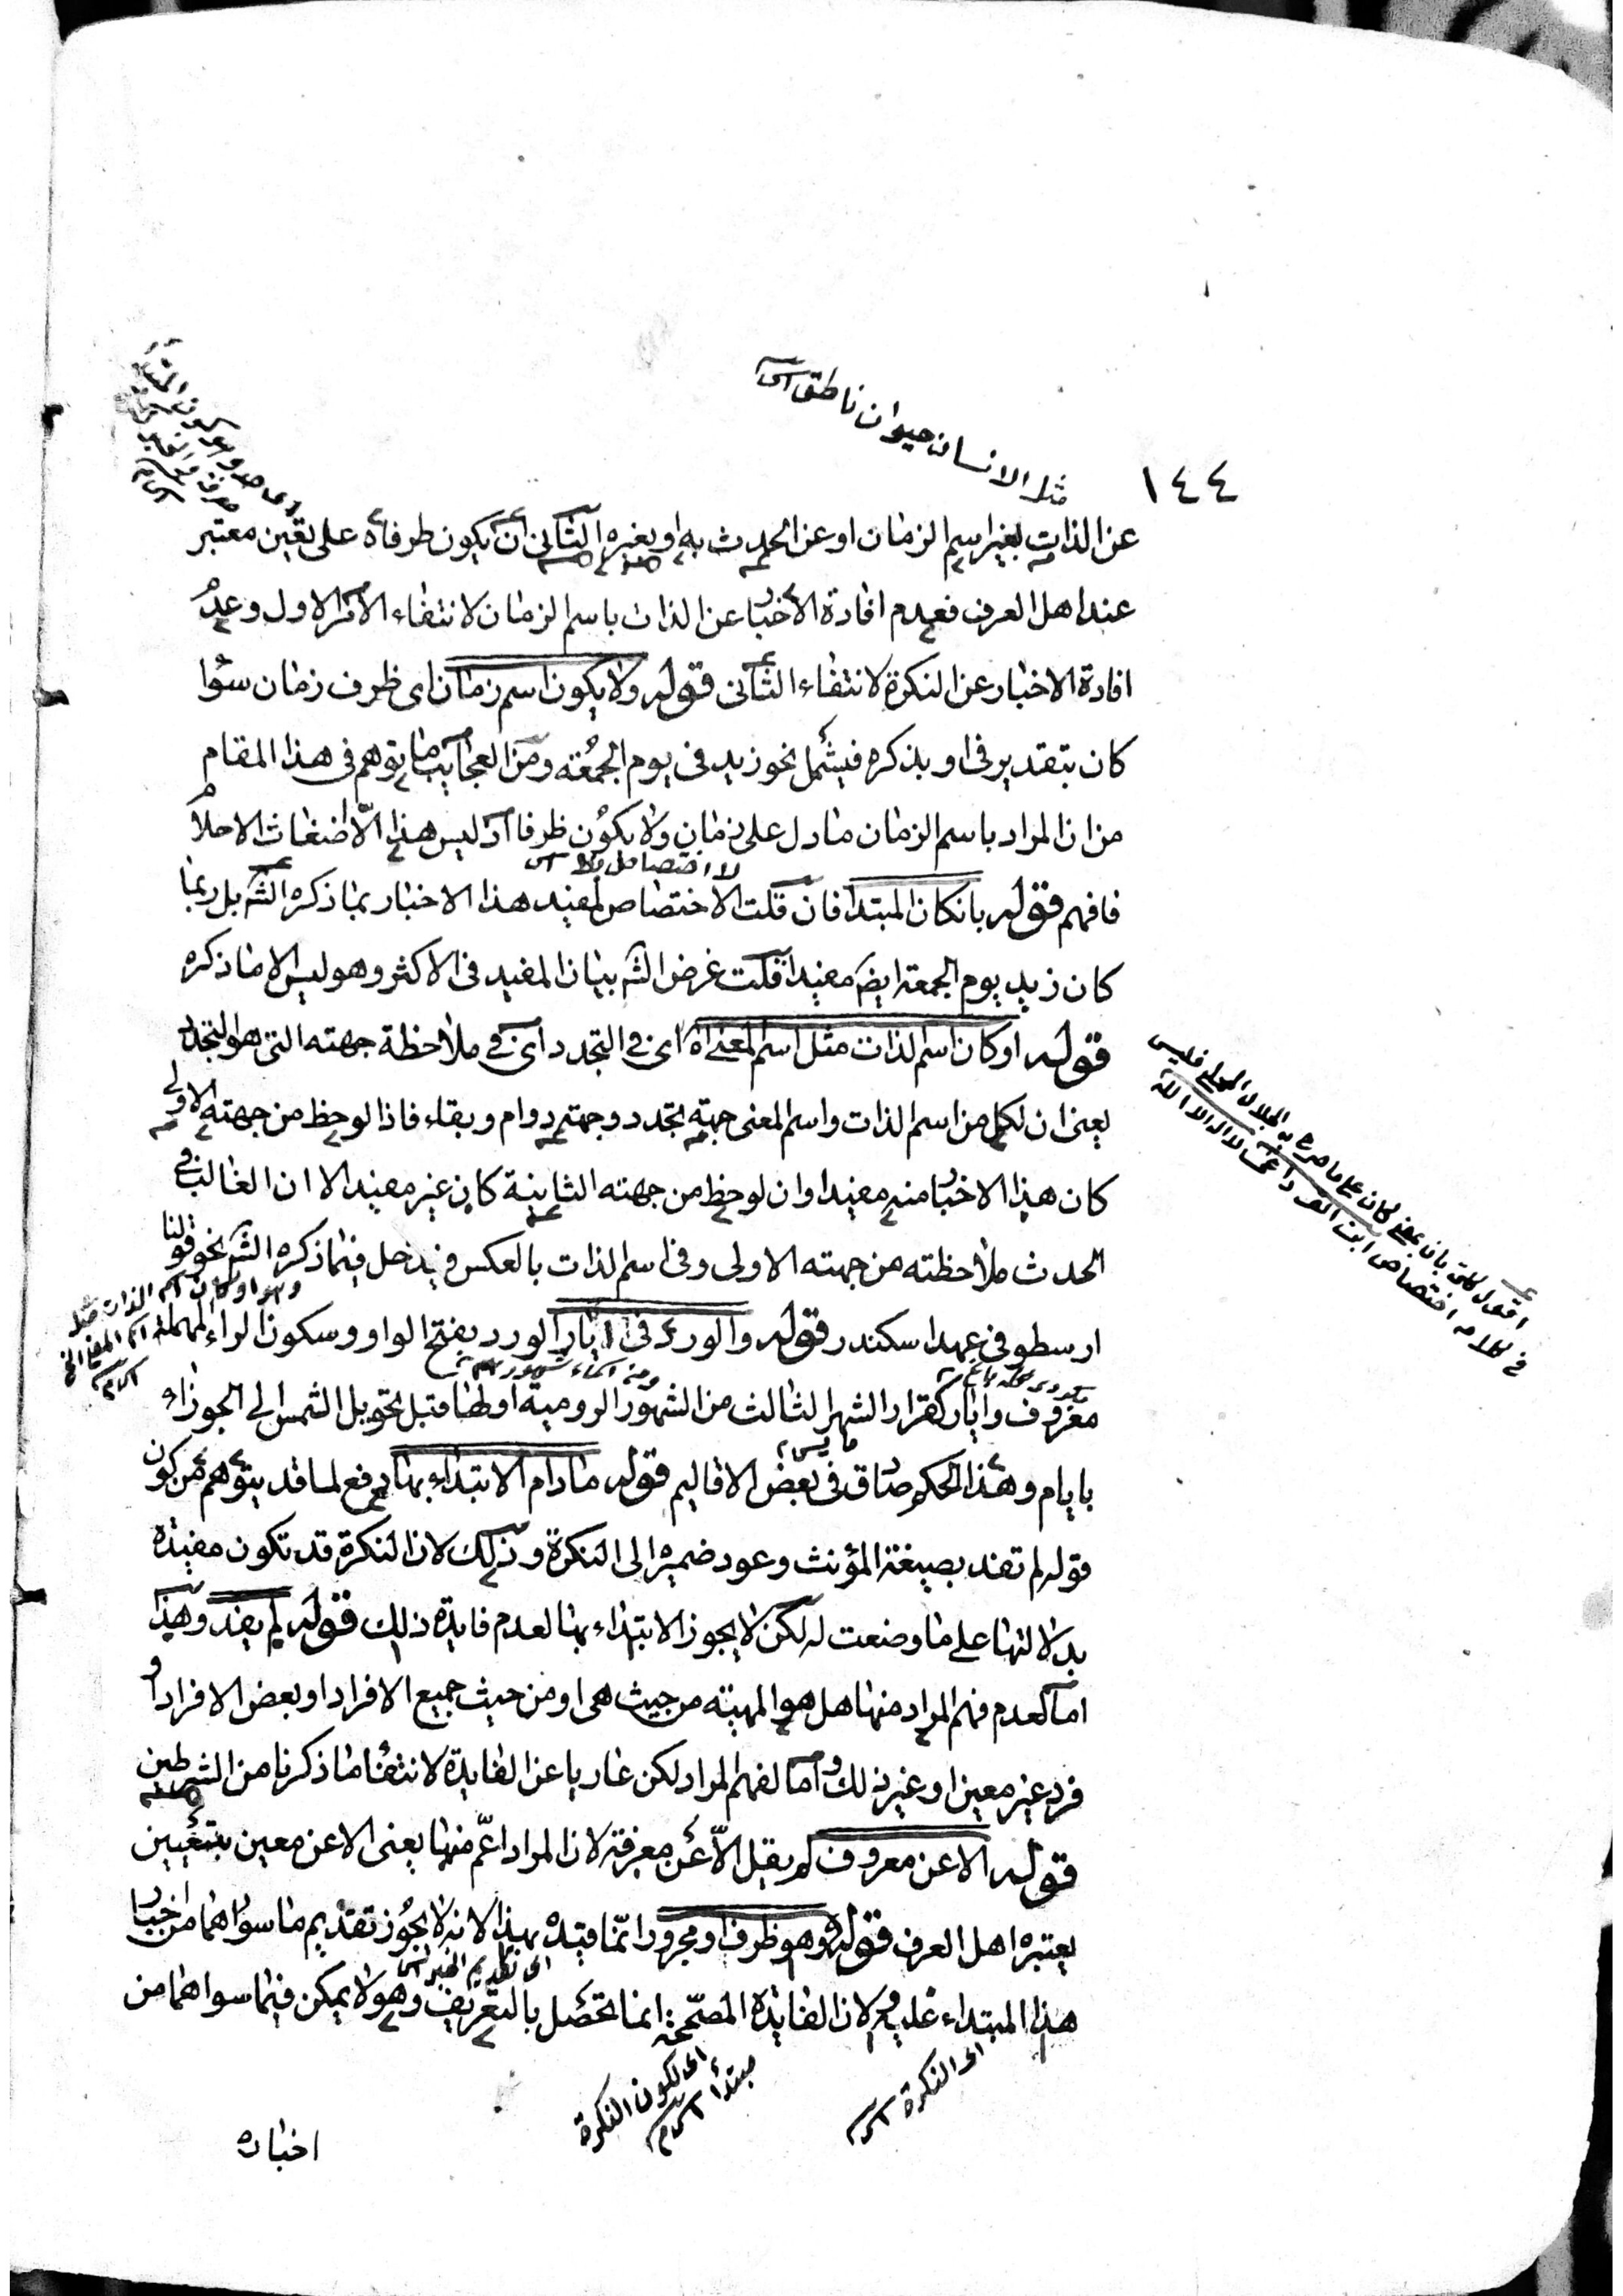 ١٤٤
مثل الانسان حيوان ناطق
عن الذات بغير اسم الزمان او عن الحدث به او بغيره الثانى ان يكون طرفاه على تعين معتبر
عند اهل العرف فعدم افادة الاخبار عن الذات باسم الزمان لانتفاء الامر الاول وعدم
افادة الاخبار عن النكرة لانتفاء الثانى قوله ولا يكون اسم زمان اى ظرف زمان سواء
كان بتقدير فى او بذكره فيشمل نحو زيد فى يوم الجمعة ومن العجايب ما توهم فى هذا المقام
من ان المراد باسم الزمان ما دل على زمان ولا يكون ظرفا اذ ليس هذا الّا اضغاث الاحلام
فافهم قوله بان كان المبتدا فان قلت لا اختصاص لمفيد هذا الاخبار بما ذكره الشه بل ربما
كان زيد يوم الجمعة ايضه مفيدا قلت غرض الشه بيان المفيد فى الاكثر وهو ليس الا ما ذكره
قوله او كان اسم لذات مثل اسم المعنى اه اى فى التجدد اى فى ملاحظة جهته التى هو التجدد
يعنى ان لكل من اسم الذات واسم المعنى جهة تجدد وجهة دوام وبقاء فاذا لوحظ من جهته الاولى
كان هذا الاخبار منه مفيدا وان لوحظ من جهته الثانية كان غير مفيد الا ان الغالب فى
الحدث ملاحظته من جهته الاولى وفى اسم لذات بالعكس فيدخل فيما ذكره الشه نحو قولنا
ارسطو فى عهد اسكندر قوله والورد فى ايار الورد بفتح الواو وسكون الراء المهملة
معروف وايار كقرار الشهر الثالث من الشهور الرومية اولها قبل تحويل الشمس الى الجوزاء
بايام وهذا الحكم صادق فى بعض الاقاليم قوله مادام الابتداء بها دفع لما قد يتوهم من كون
قوله لم تفد بصيغة المؤنث وعود ضميره الى النكرة وذلك لان النكرة قد تكون مفيدة
بدلالتها على ما وضعت له لكن لا يجوز الابتداء بها لعدم فايدة ذلك قوله لم يفد وهذا
اما لعدم فهم المراد منها هل هو المهية من حيث هى او من حيث جميع الافراد او بعض الافراد او
فرد غير معين او غير ذلك واما لفهم المراد لكن عاريا عن الفايدة لانتفاء ما ذكرنا من الشرطين
قوله الا عن معروف لم يقل الّا عن معرفة لان المراد اعّم منها يعنى الا عن معين بتعيين
يعتبره اهل العرف قوله وهو ظرف او مجرور انّما قيده بهذا لانه لا يجوز تقديم ما سواهما من اخبار
هذا المبتداء عليه لان الفايدة المصحّحة انما تحصل بالتعريف وهو لا يمكن فيما سواهما من
اى تقديم الخبر
اى النكرة
اى لكون النكرة
مبتدأ
اخبار